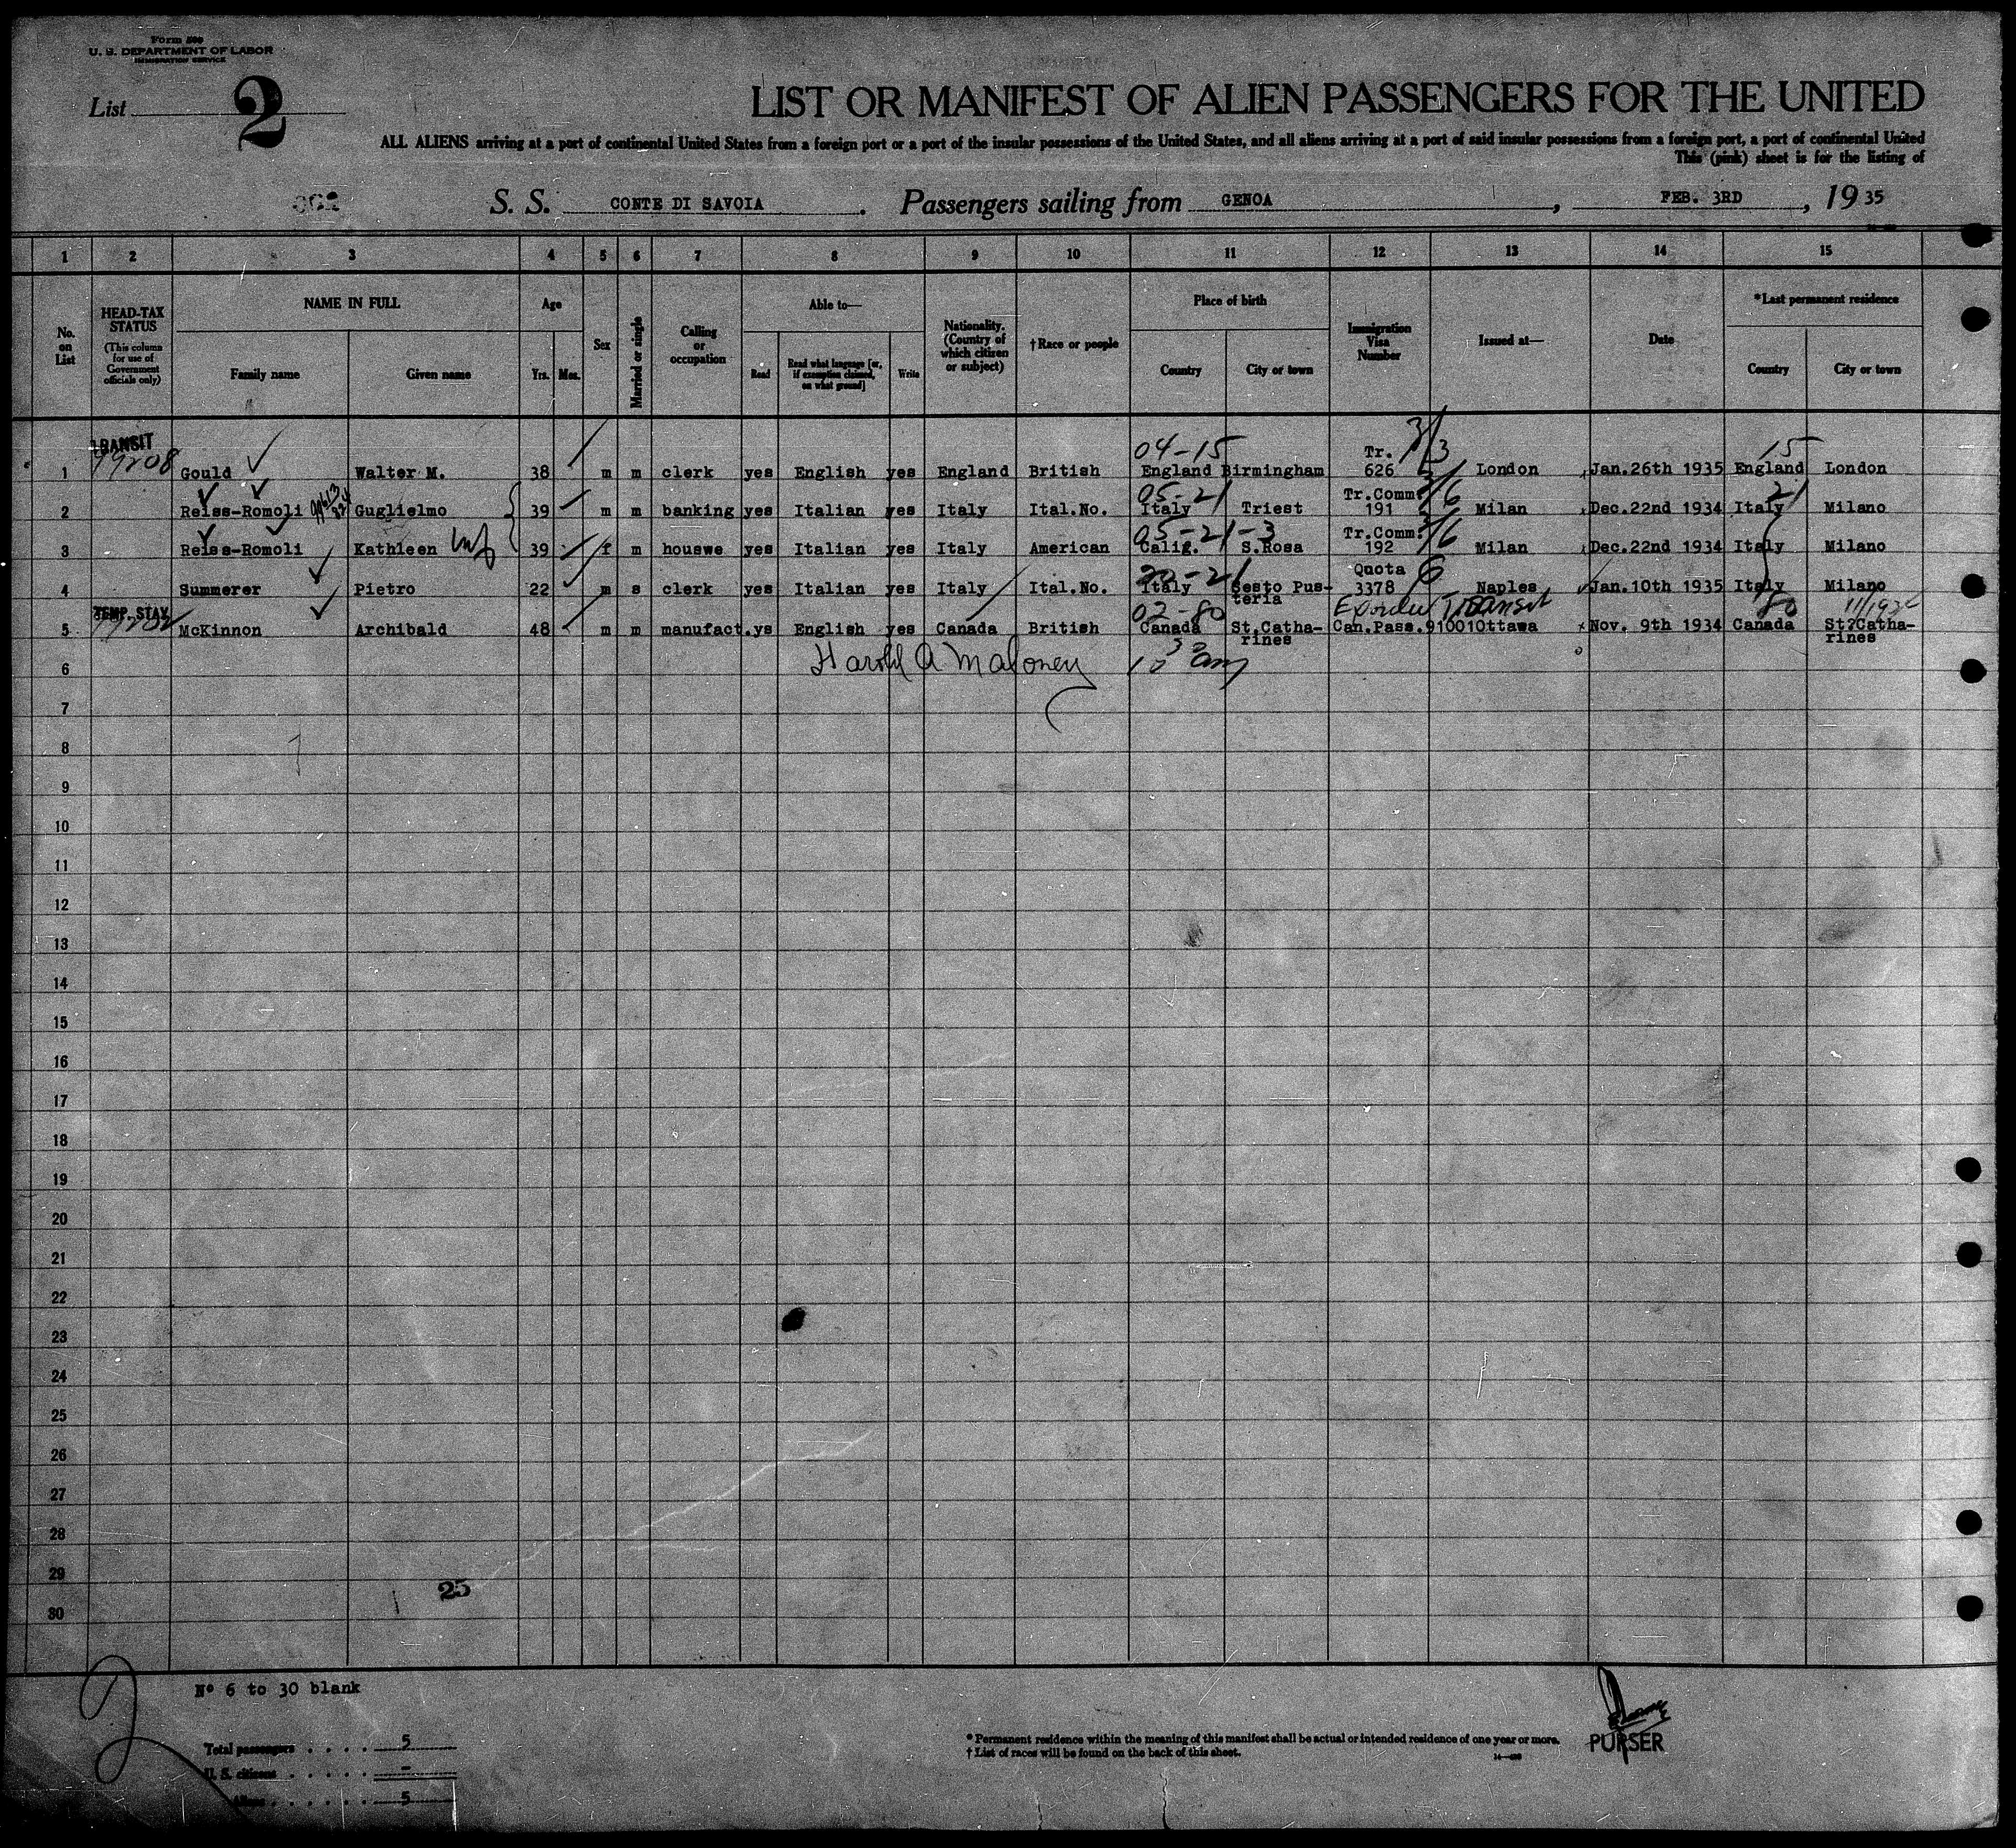 Form 500
U. S. DEPARTMENT OF LABOR
IMMIGRATION SERVICE
List 2
LIST OR MANIFEST OF ALIEN PASSENGERS FOR THE UNITED
ALL ALIENS arriving at a port of continental United States from a foreign port or a port of the insular possessions of the United States, and all aliens arriving at a port of said insular possessions from a foreign port, a port of continental United
This (pink) sheet is for the listing of
S. S. CONTE DI SAVOIA. Passengers sailing from GENOA, FEB. 3RD, 1935
1 2 3 4 5 6 7 8 9 10 11 12 13 14 15
No. on List
HEAD-TAX STATUS (This column for use of Government officials only)
NAME IN FULL Family name Given name
Age Yrs. Mos.
Sex
Married or single
Calling or occupation
Able to— Read Read what language [or, if exemption claimed, on what ground] Write
Nationality. (Country of which citizen or subject)
†Race or people
Place of birth Country City or town
Immigration Visa Number
Issued at—
Date
*Last permanent residence Country City or town
TRANSIT 04-15 Tr. 3/3 15
1 99208 Gould Walter M. 38 m m clerk yes English yes England British England Birmingham 626 London Jan.26th 1935 England London
05-21 Tr.Comm. 3/6 21
2 Reiss-Romoli Guglielmo 39 m m banking yes Italian yes Italy Ital.No. Italy Triest 191 Milan Dec.22nd 1934 Italy Milano
05-21-3 Tr.Comm. 3/6
3 Reiss-Romoli Kathleen 39 f m houswe yes Italian yes Italy American Calif. S.Rosa 192 Milan Dec.22nd 1934 Italy Milano
Quota 6
4 Summerer Pietro 22 m s clerk yes Italian yes Italy Ital.No. Italy Sesto Pus-teria 3378 Naples Jan.10th 1935 Italy Milano
TEMP. STAY 02-80 Transit 80
5 McKinnon Archibald 48 m m manufact. ys English yes Canada British Canada St.Catha-rines Can.Pass.910010ttawa Nov. 9th 1934 Canada St.Catha-rines
6 Harold A Maloney 10 30 am
7
8
9
10
11
12
13
14
15
16
17
18
19
20
21
22
23
24
25
26
27
28
29
30
25
Nº 6 to 30 blank
Total passengers . . . . . 5
U. S. citizens . . . . . -
Aliens . . . . . 5
* Permanent residence within the meaning of this manifest shall be actual or intended residence of one year or more.
† List of races will be found on the back of this sheet.
PURSER